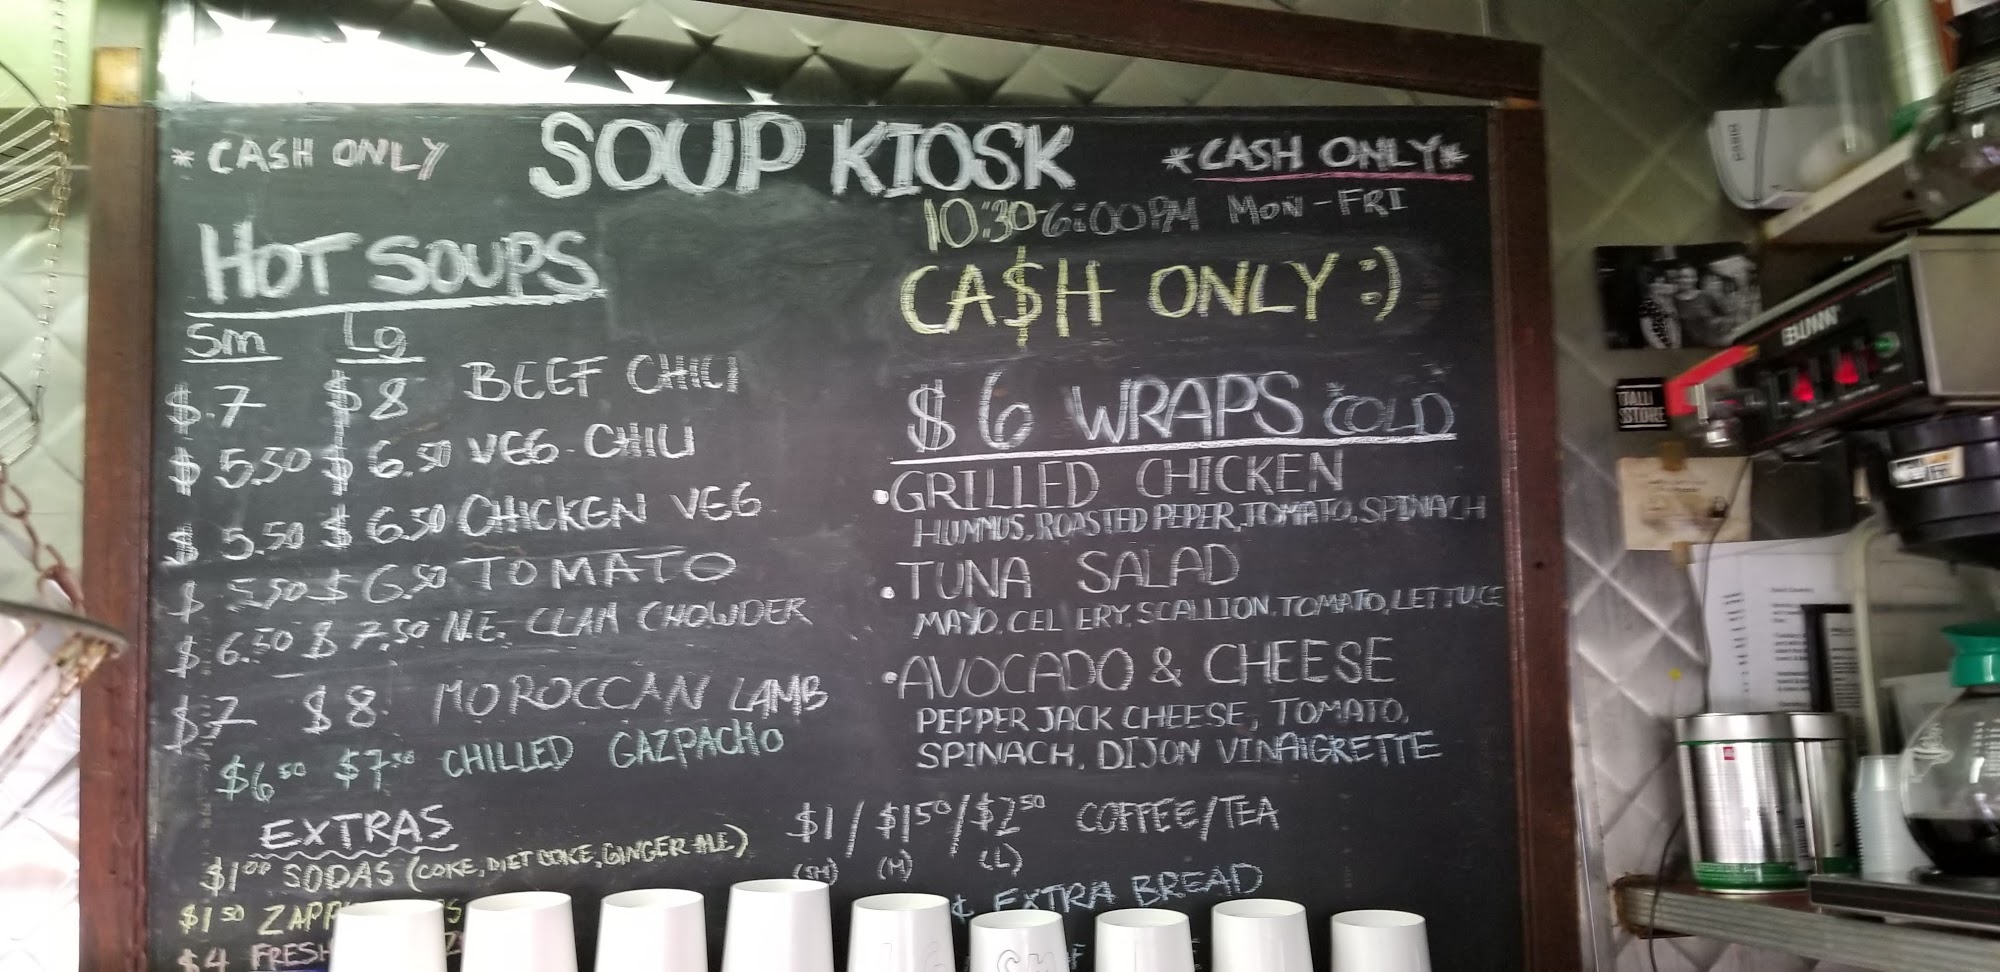 * CASH ONLY
SOUP KIOSK
*CASH ONLY*
10:30-6:00PM MON-FRI
CA$H ONLY :)
HOT SOUPS
Sm Lg
$7 $8 BEEF CHILI
$5.50 $6.50 VEG CHILI
$5.50 $6.50 CHICKEN VEG
$5.50 $6.50 TOMATO
$6.50 $7.50 N.E. CLAM CHOWDER
$7 $8 MOROCCAN LAMB
$6.50 $7.50 CHILLED GAZPACHO
$6 WRAPS COLD
•GRILLED CHICKEN
HUMMUS, ROASTED PEPER, TOMATO, SPINACH
•TUNA SALAD
MAYO, CELERY, SCALLION, TOMATO, LETTUCE
•AVOCADO & CHEESE
PEPPER JACK CHEESE, TOMATO,
SPINACH, DIJON VINAIGRETTE
EXTRAS
$1.00 SODAS (COKE, DIET COKE, GINGER ALE)
$1.50
$4 FRESH
$1 / $1.50 / $2.50 COFFEE/TEA
(SM) (M) (L)
EXTRA BREAD
BUNN